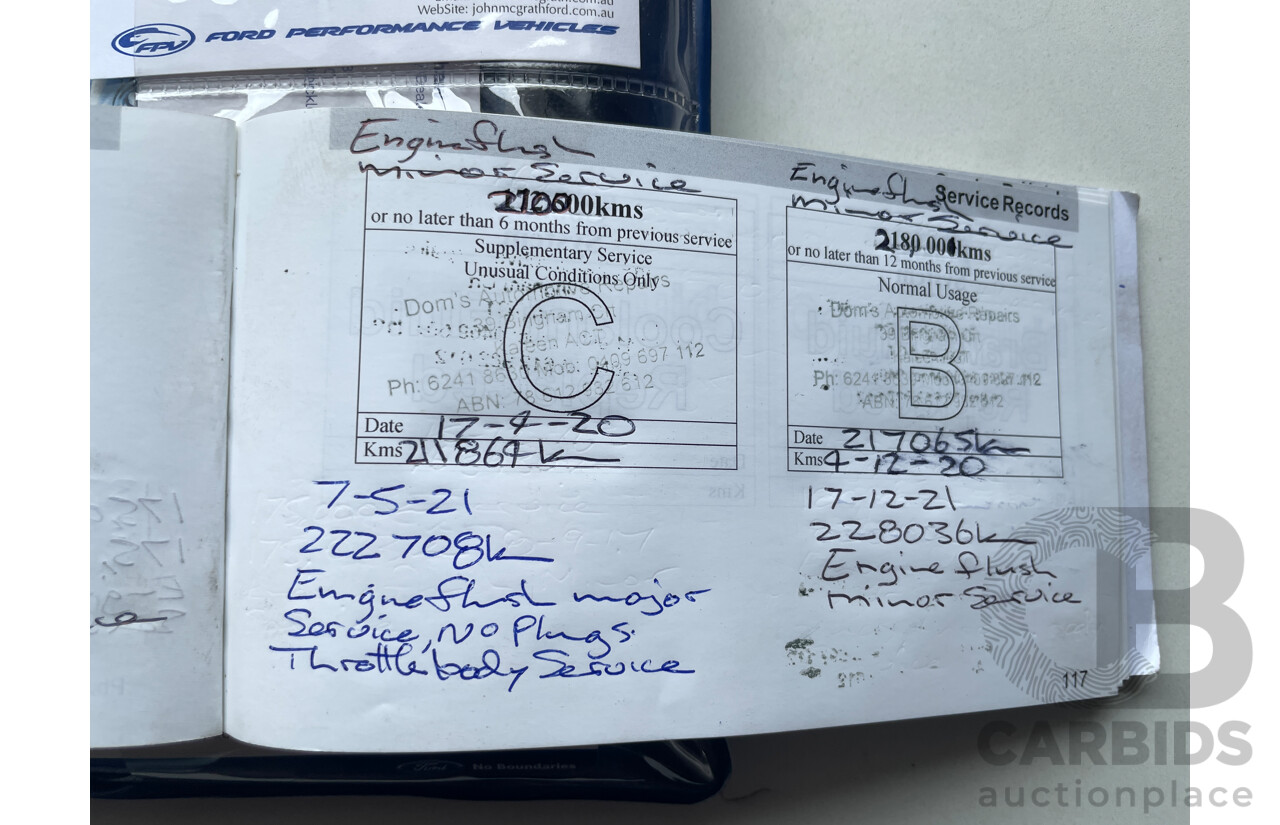 WebSite: johnmcgrathford.com.au
FPV FORD PERFORMANCE VEHICLES
Engine flush
minor Service
210000kms
or no later than 6 months from previous service
Supplementary Service
Unusual Conditions Only
Dom's Automotive Repairs
C
Ph: 6241 Mob: 0499 697 112
ABN: 612
Date 17-4-20
Kms 211864k
7-5-21
222708k
Engine flush major
Service, NO Plugs.
Throttle body Service
Service Records
Engine flush
minor Service
kms
or no later than 12 months from previous service
Normal Usage
Dom's Automotive Repairs
B
Ph: 6241
ABN:
Date 217065k
Kms 4-12-20
17-12-21
228036k
Engine flush
minor Service
117
Ford No Boundaries
CB
CARBIDS
auctionplace